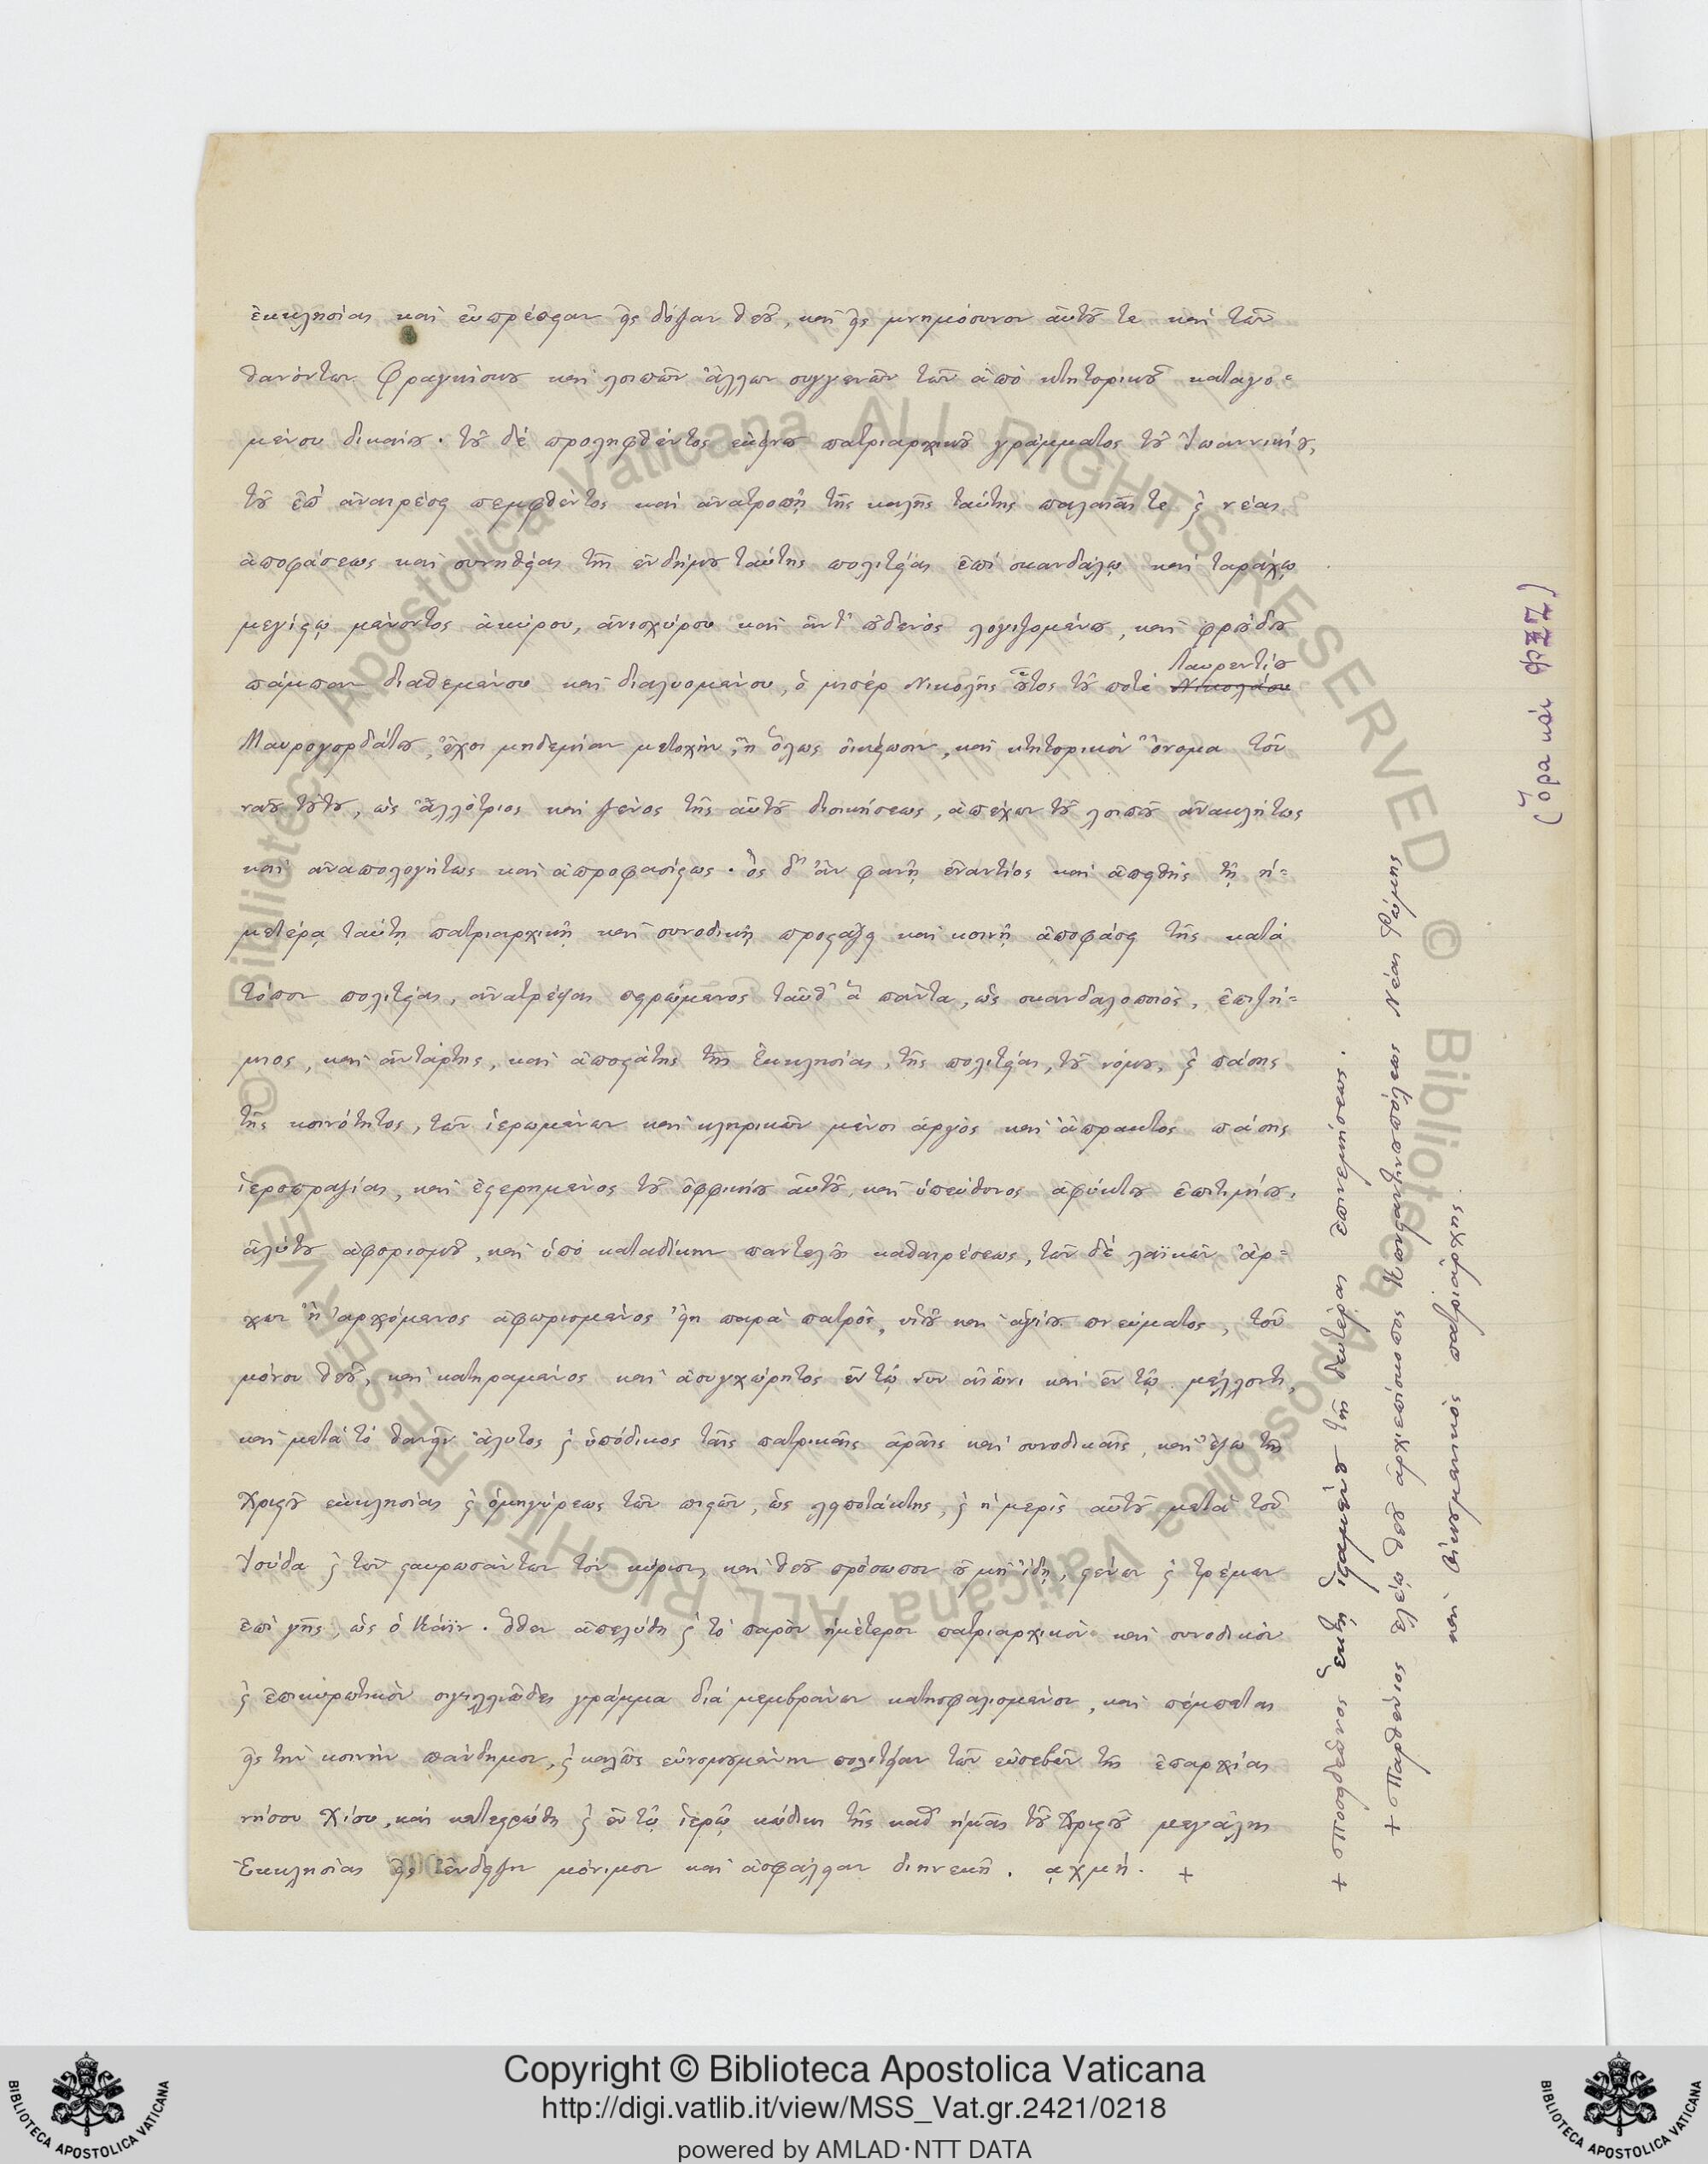 ἐκκλησίας καὶ εὐπρέπειαν εἰς δόξαν θεοῦ, καὶ εἰς μνημόσυνον αὐτοῦ τε καὶ τῶν
θανόντων Φραγκίσκου καὶ λοιπῶν ἄλλων συγγενῶν τῶν ἀπὸ κτητορικοῦ καταγο=
μένου δικαίου. τοῦ δὲ προληφθέντος ἐκείνου πατριαρχικοῦ γράμματος τοῦ Ἰωαννικίου,
τοῦ ἐπ' ἀναιρέσει πεμφθέντος καὶ ἀνατροπῇ τῆς καλῆς ταύτης παλαιᾶς τε ϗ νέας
ἀποφάσεως καὶ συνηθείας τῆς ἐνδήμου ταύτης πολιτείας ἐπὶ σκανδάλῳ καὶ ταράχῳ
μεγίστῳ μένοντος ἀκύρου, ἀνισχύρου καὶ ἀντ' οὐδενὸς λογιζομένου, καὶ φρούδου
Λαυρεντίου
πάμπαν διαθεμένου καὶ διαλυομένου, ὁ μισὲρ Νικολῆς οὗτος τοῦ ποτὲ Νικολάου
Μαυρογορδάτου, ἔχοι μηδεμίαν μετοχὴν, ἢ ὅλως οἰκείωσιν, καὶ κτητορικὸν ὄνομα τοῦ
ναοῦ τούτου, ὡς ἀλλότριος καὶ ξένος τῆς αὐτοῦ διοικήσεως, ἀπέχων τοῦ λοιποῦ ἀνακλήτως
καὶ ἀναπολογήτως καὶ ἀπροφασίστως. ὃς δ' ἂν φανῇ ἐναντίος καὶ ἀπειθὴς τῇ ἡ=
μετέρᾳ ταύτῃ πατριαρχικῇ καὶ συνοδικῇ προστάξει καὶ κοινῇ ἀποφάσει τῆς κατὰ
τόπον πολιτείας, ἀνατρέψαι πειρώμενος ταῦθ' ἃ πάντα, ὡς σκανδαλοποιὸς, ἐπιζή=
μιος, καὶ ἀντάρτης, καὶ ἀποστάτης τῆς Ἐκκλησίας, τῆς πολιτείας, τοῦ νόμου, ϗ πάσης
τῆς κοινότητος, τῶν ἱερωμένων καὶ κληρικῶν μένοι ἀργὸς καὶ ἄπρακτος πάσης
ἱεροπραξίας, καὶ ἐστερημένος τοῦ ὀφφικίου αὐτοῦ, καὶ ὑπεύθυνος ἀφύκτου ἐπιτιμίου,
ἀλύτου ἀφορισμοῦ, καὶ ὑπὸ καταδίκην παντελοῦς καθαιρέσεως, τῶν δὲ λαϊκῶν ἄρ=
χων ἢ ἀρχόμενος ἀφωρισμένος εἴη παρὰ πατρὸς, υἱοῦ καὶ ἁγίου πνεύματος, τοῦ
μόνου θεοῦ, καὶ κατηραμένος καὶ ἀσυγχώρητος ἐν τῷ νῦν αἰῶνι καὶ ἐν τῷ μέλλοντι,
καὶ μετὰ τὸ θανεῖν ἄλυτος ϗ ὑπόδικος ταῖς πατρικαῖς ἀραῖς καὶ συνοδικαῖς, καὶ ἔξω τῆς
Χριστοῦ ἐκκλησίας ϗ ὁμηγύρεως τῶν πιστῶν, ὡς λειποτάκτης, ϗ ἡ μερὶς αὐτοῦ μετὰ τοῦ
Ἰούδα ϗ τῶν σταυρωσάντων τὸν κύριον, καὶ θεοῦ πρόσωπον οὐ μὴ ἴδῃ, στένων ϗ τρέμων
ἐπὶ γῆς, ὡς ὁ Κάϊν. ὅθεν ἀπελύθη ϗ τὸ παρὸν ἡμέτερον πατριαρχικὸν καὶ συνοδικὸν
ϗ ἐπικυρωτικὸν σιγιλλιῶδες γράμμα διὰ μεμβράνων κατησφαλισμένον, καὶ πέμπεται
εἰς τὴν κοινὴν πάνδημον, ϗ καλῶς εὐνομουμένην πολιτείαν τῶν εὐσεβῶν τῆς ἐπαρχίας
νήσου Χίου, καὶ κατεστρώθη ϗ ἐν τῷ ἱερῷ κώδικι τῆς καθ' ἡμᾶς τοῦ Χριστοῦ μεγάλης
Ἐκκλησίας εἰς ἔνδειξιν μόνιμον καὶ ἀσφάλειαν διηνεκῆ. ͵αχμή. +
+ ποσειδεῶνος ἕκτῃ ἱσταμένου τῆς δευτέρας ἐπινεμήσεως.
+ Παρθένιος ἐλέῳ θεοῦ ἀρχιεπίσκοπος Κωνσταντινουπόλεως Νέας Ῥώμης
καὶ Οἰκουμενικὸς πατριάρχης.
(Ὅρα καὶ
Copyright © Biblioteca Apostolica Vaticana
http://digi.vatlib.it/view/MSS_Vat.gr.2421/0218
powered by AMLAD·NTT DATA
BIBLIOTECA APOSTOLICA VATICANA
BIBLIOTECA APOSTOLICA VATICANA
© Biblioteca Apostolica Vaticana ALL RIGHTS RESERVED © Biblioteca Apostolica Vaticana ALL RIGHTS RESERVED